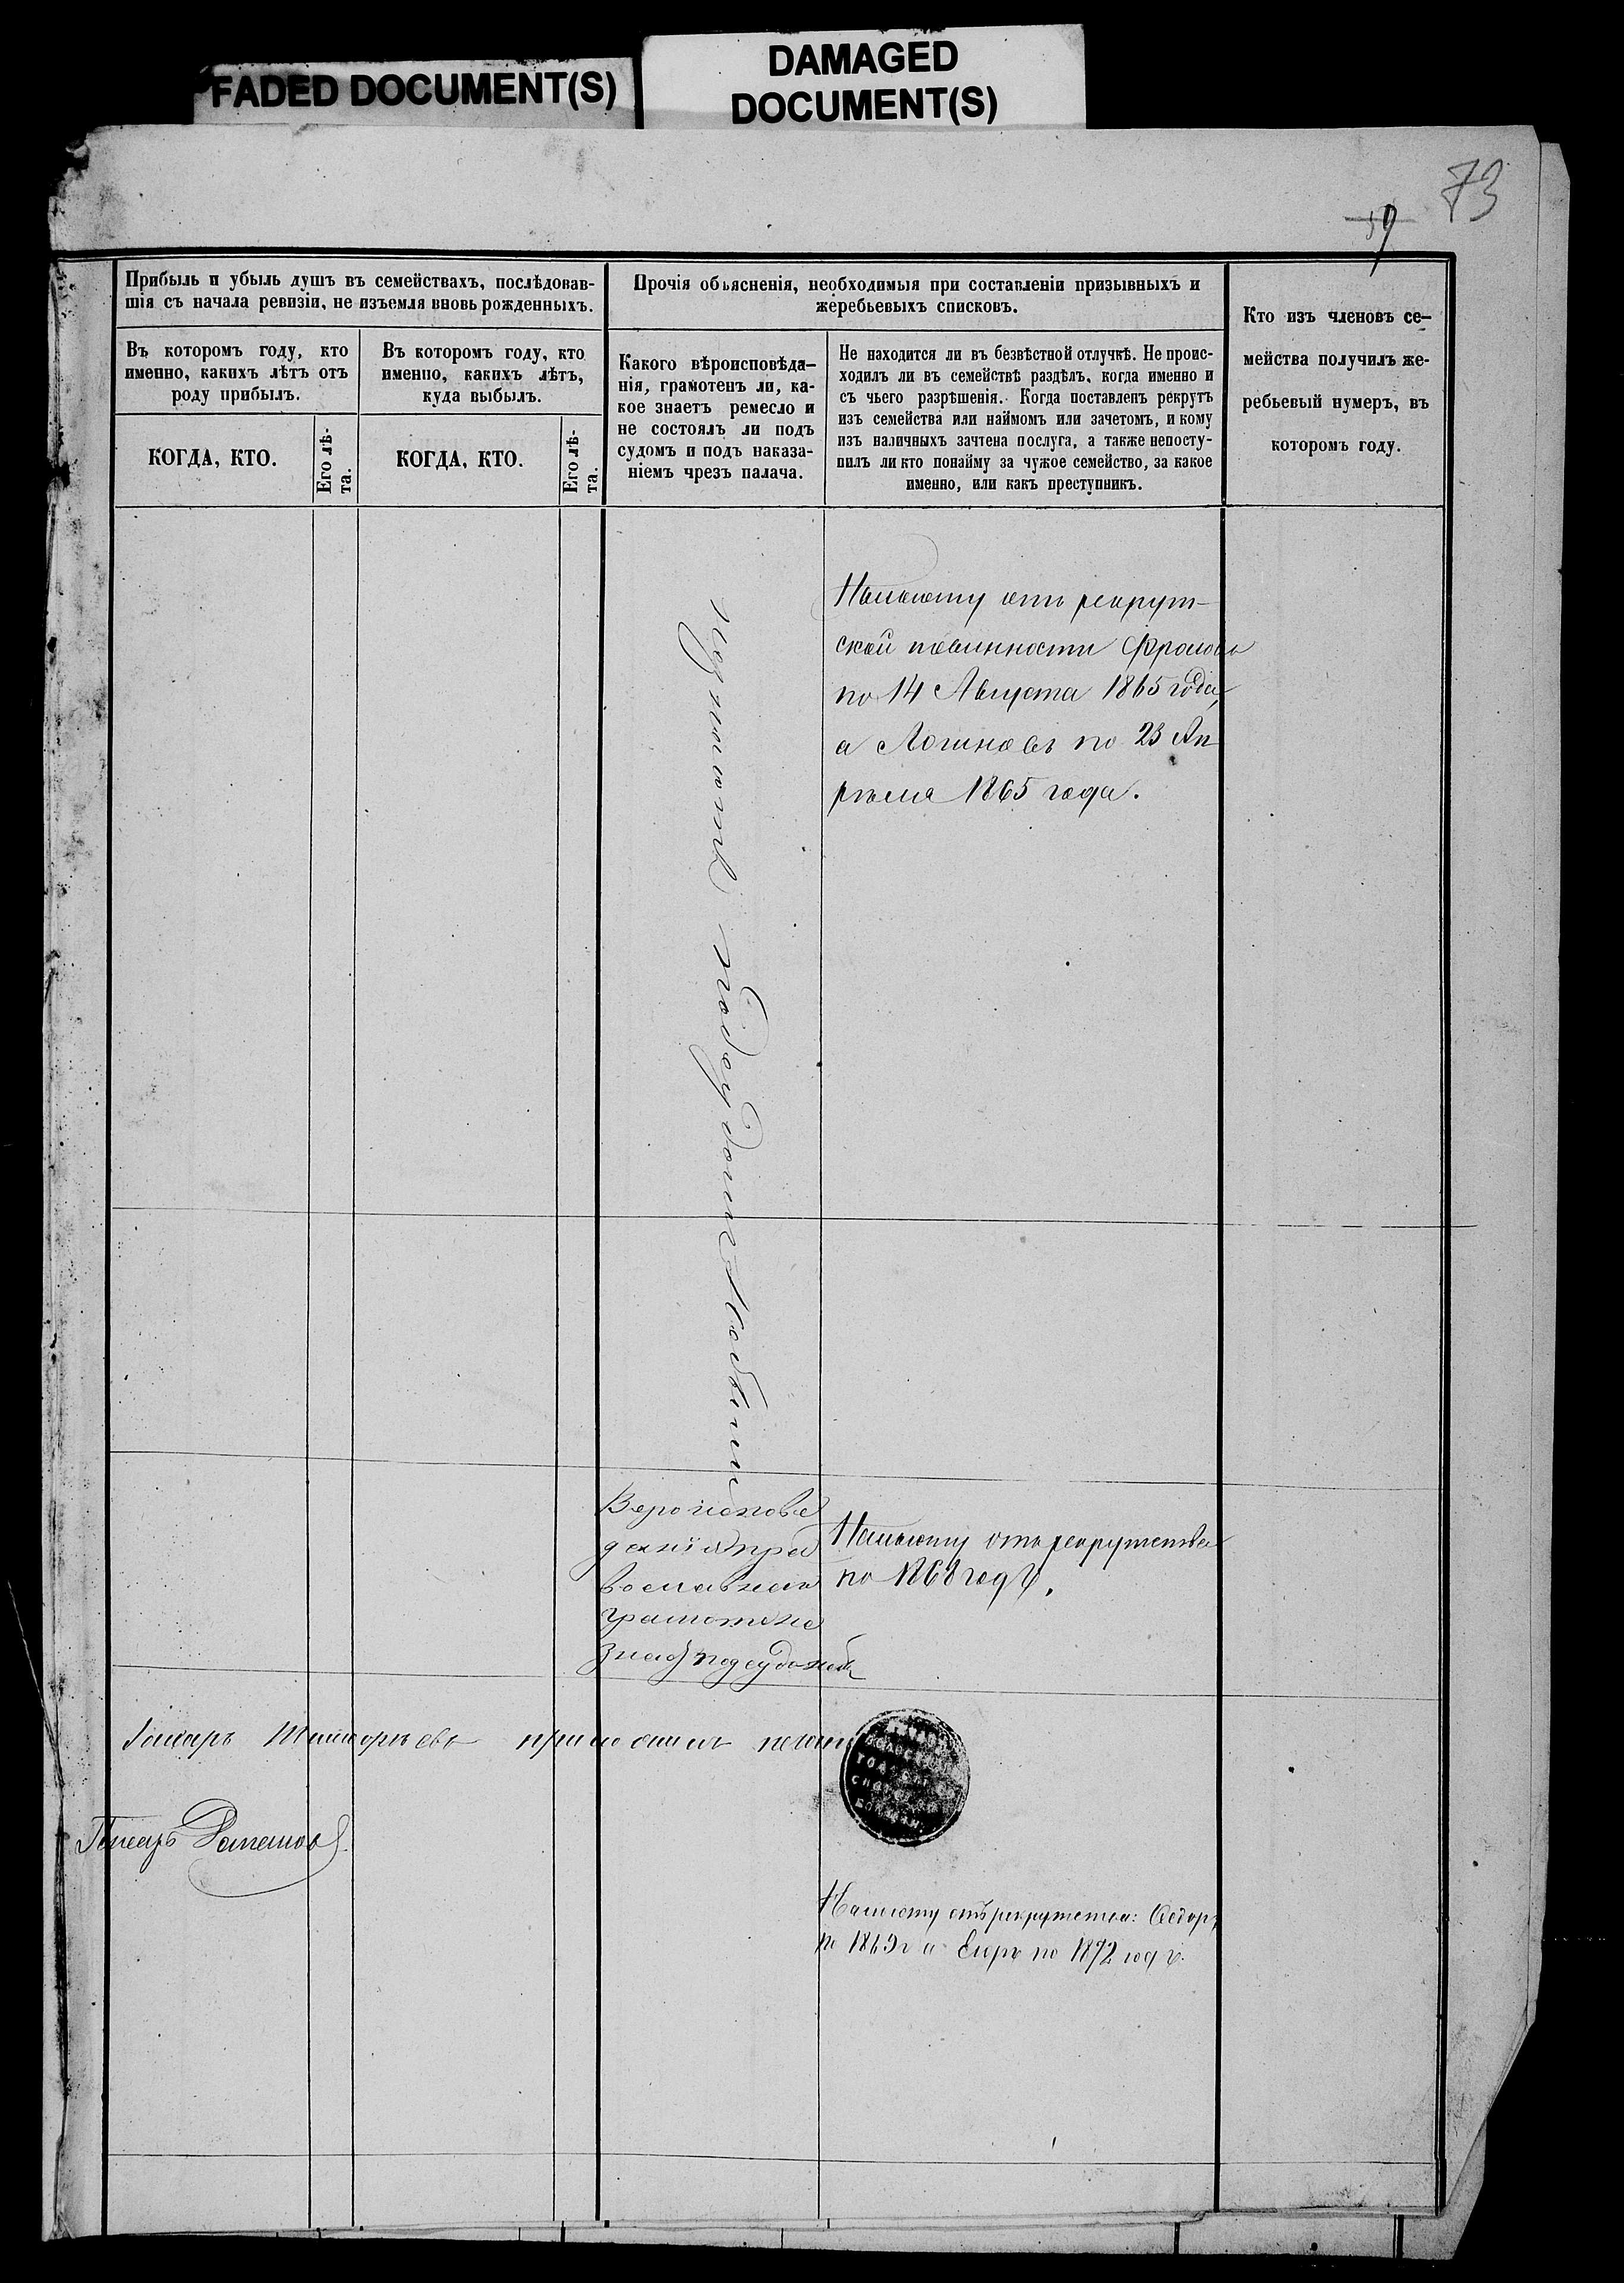 FADED DOCUMENT(S)
DAMAGED
DOCUMENT(S)
73
59
Прибыль и убыль душъ въ семействахъ, послѣдовав-
шія съ начала ревизіи, не изъемля вновь рожденныхъ.
Въ которомъ году, кто
именно, какихъ лѣтъ отъ
роду прибылъ.
Въ которомъ году, кто
именно, какихъ лѣтъ,
куда выбылъ.
КОГДА, КТО.
Его лѣ-
та.
КОГДА, КТО.
Его лѣ-
та.
Прочія объясненія, необходимыя при составленіи призывныхъ и
жеребьевыхъ списковъ.
Какого вѣроисповѣда-
нія, грамотенъ ли, ка-
кое знаетъ ремесло и
не состоялъ ли подъ
судомъ и подъ наказа-
ніемъ чрезъ палача.
Не находится ли въ безвѣстной отлучкѣ. Не проис-
ходилъ ли въ семействѣ раздѣлъ, когда именно и
съ чьего разрѣшенія. Когда поставленъ рекрутъ
изъ семейства или наймомъ или зачетомъ, и кому
изъ наличныхъ зачтена послуга, а также непосту-
пилъ ли кто понайму за чужое семейство, за какое
именно, или какъ преступникъ.
Кто изъ членовъ се-
мейства получилъ же-
ребьевый нумеръ, въ
которомъ году.
отъ рекрут-
ской повинности Фроловъ
по 14 Августа 1865 года,
а Логиновъ по 23 Ап
рѣля 1865 года.
Вероиспове
данія пра
вославнаго
грамотене
отъ рекрутства
по 1868 годъ.
печать
Писарь
отъ рекрутства: Ѳедоръ
по 1869 г а по 1872 годъ.